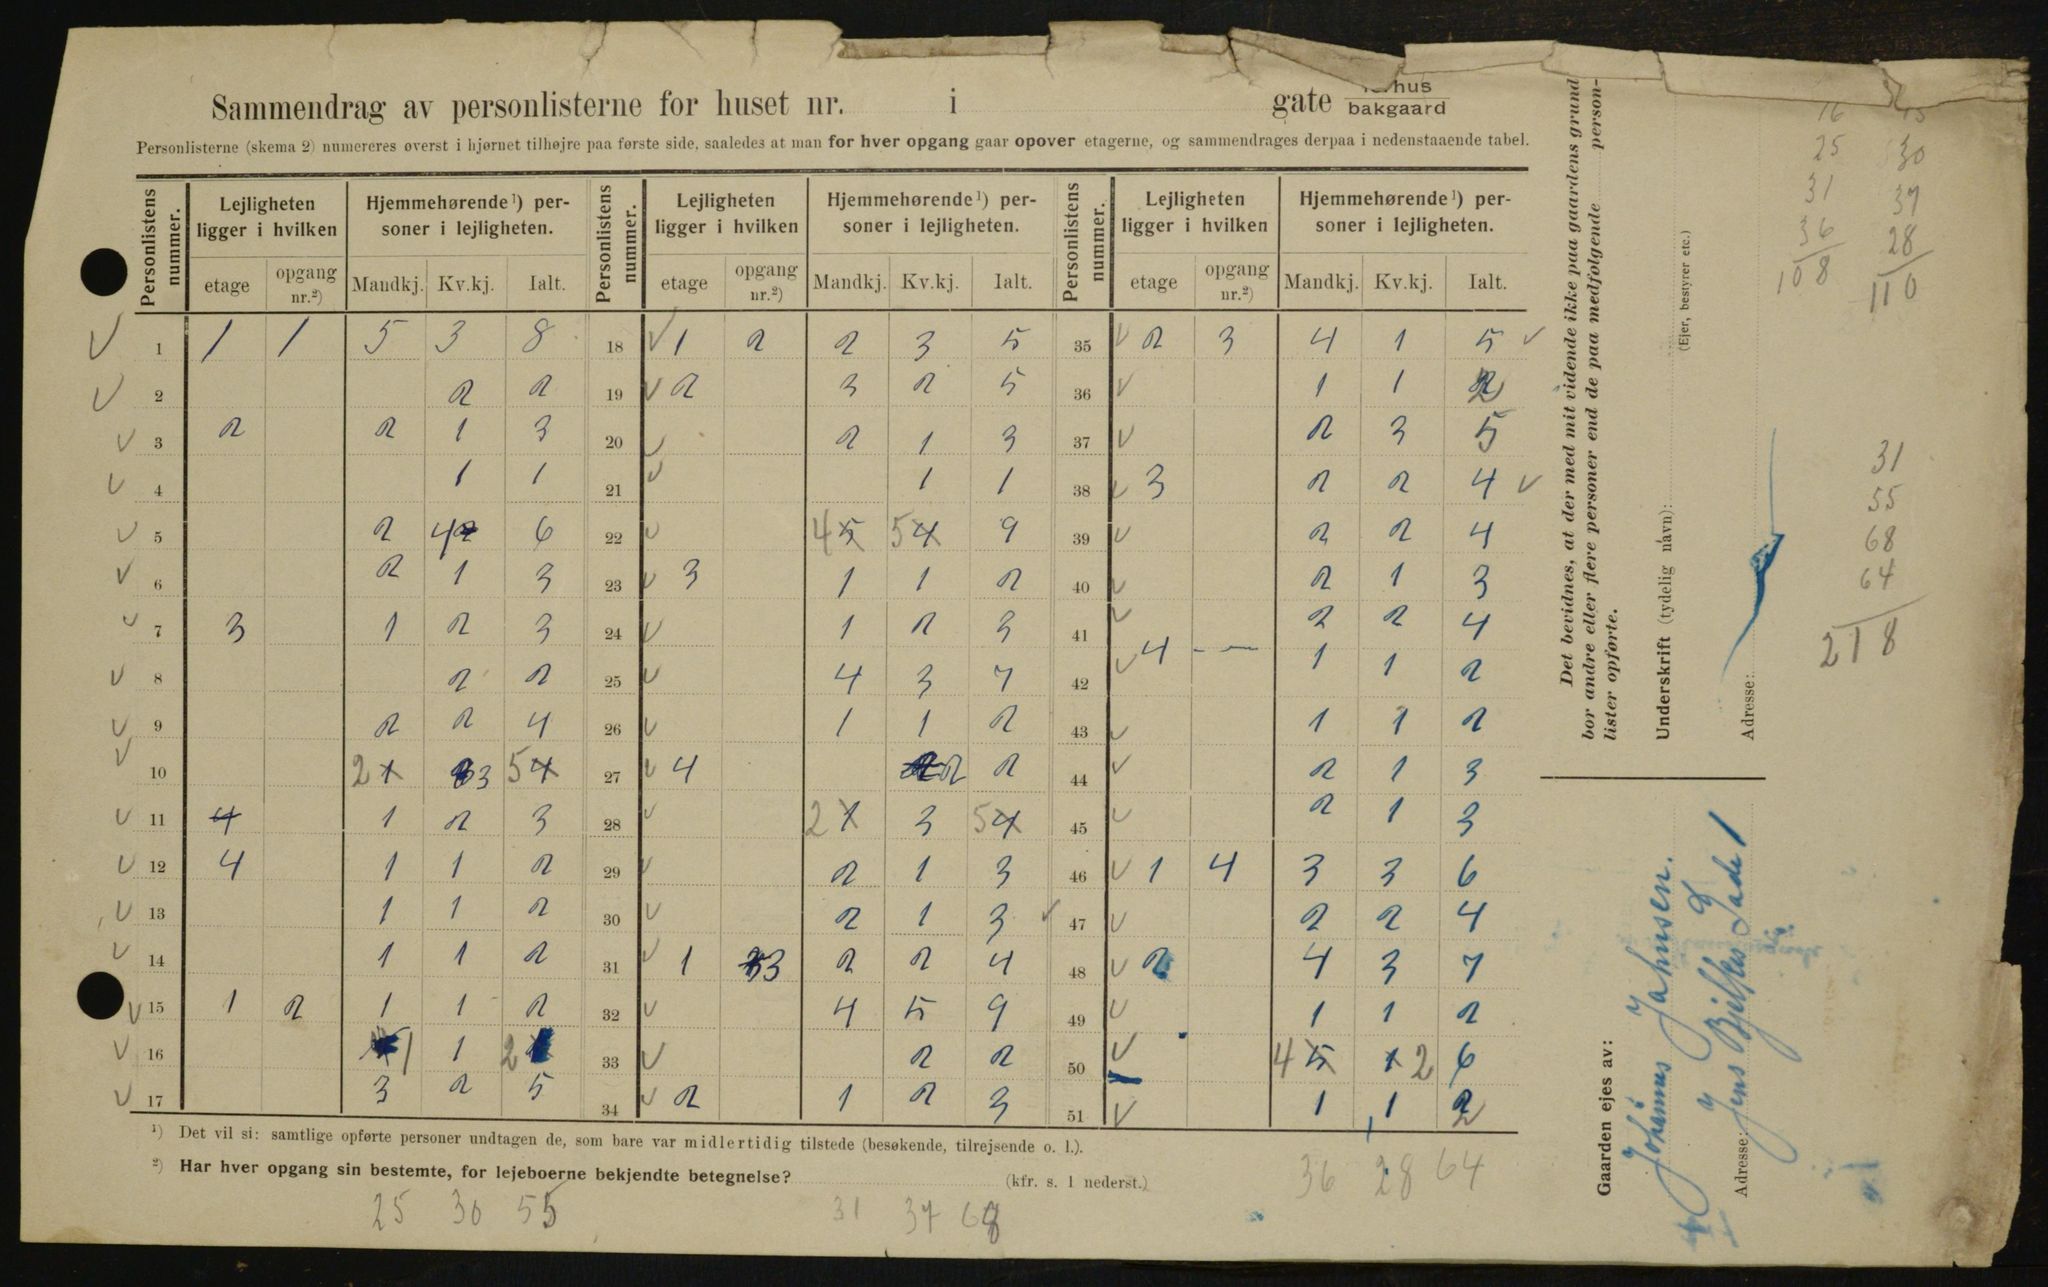 Sammendrag av personlisterne for huset nr. i gate bakgaard
Personlisterne (skema 2) numereres øverst i hjørnet tilhøjre paa første side, saaledes at man for hver opgang gaar opover etagerne, og sammendrages derpaa i nedenstaaende tabel.
Personlistens nummer. Lejligheten ligger i hvilken Hjemmehørende¹) personer i lejligheten. Personlistens nummer. Lejligheten ligger i hvilken Hjemmehørende¹) personer i lejligheten. Personlistens nummer. Lejligheten ligger i hvilken Hjemmehørende¹) personer i lejligheten.
etage opgang nr.²) Mandkj. Kv.kj. Ialt. etage opgang nr.²) Mandkj. Kv.kj. Ialt. etage opgang nr.²) Mandkj. Kv.kj. Ialt.
1 1 1 5 3 8 18 1 2 2 3 5 35 2 3 4 1 5
2 2 2 19 2 3 2 5 36 1 1 2
3 2 2 1 3 20 2 1 3 37 2 3 5
4 1 1 21 1 1 38 3 2 2 4
5 2 4 6 22 4 5 5 4 9 39 2 2 4
6 2 1 3 23 3 1 1 2 40 2 1 3
7 3 1 2 3 24 1 2 3 41 2 2 4
8 2 2 25 4 3 7 42 4 - — 1 1 2
9 2 2 4 26 1 1 2 43 1 1 2
10 2 1 3 5 4 27 4 2 2 44 2 1 3
11 4 1 2 3 28 2 1 3 5 4 45 2 1 3
12 4 1 1 2 29 2 1 3 46 1 4 3 3 6
13 1 1 2 30 2 1 3 47 2 2 4
14 1 1 2 31 1 3 2 2 4 48 2 4 3 7
15 1 2 1 1 2 32 4 5 9 49 1 1 2
16 1 1 2 33 2 2 50 4 5 1 2 6
17 3 2 5 34 2 1 2 3 51 1 1 2
¹) Det vil si: samtlige opførte personer undtagen de, som bare var midlertidig tilstede (besøkende, tilrejsende o. l.).
²) Har hver opgang sin bestemte, for lejeboerne bekjendte betegnelse? (kfr. s. 1 nederst.)
25 30 55 31 37 68 36 28 64
Det bevidnes, at der med mit vidende ikke paa gaardens grund
bor andre eller flere personer end de paa medfølgende person-
lister opførte.
Underskrift (tydelig navn):
(Ejer, bestyrer etc.)
Adresse:
Gaarden ejes av:
Johannes Jahnsen.
Adresse: Jens Bjelkes Gade 1
16 45
25 30
31 37
36 28
108 110
31
55
68
64
218